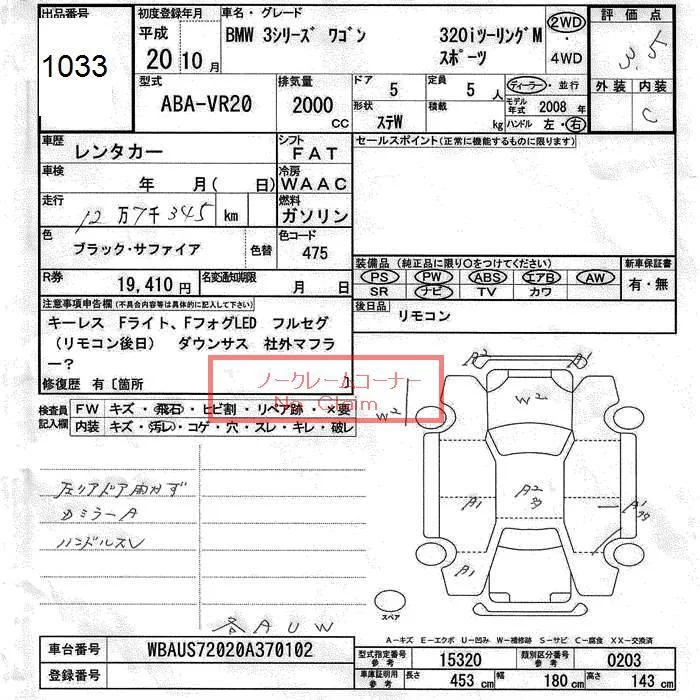 出品番号 初度登録年月 車名・グレード 評価点
平成 BMW 3シリーズ ワゴン 320iツーリングM 2WD 3.5
1033 20 10月 スポーツ ・ 4WD
型式 排気量 ドア 5 定員 5 人 ディーラー・並行 外装 内装
ABA-VR20 2000 CC 形状 ステW 積載 kg モデル年式 2008 年 C
ハンドル 左・右
車歴 レンタカー シフト FAT セールスポイント(正常に機能するものに限ります)
車検 年 月( 日) 冷房 WAAC
走行 12万7千345 km 燃料 ガソリン
色 ブラック・サファイア 色替 色コード 475
装備品(純正品に限り○をつけてください) 新車保証書
R券 19,410円 名変通知期限 月 日 PS PW ABS エアB AW 有・無
SR ナビ TV カワ
注意事項申告欄(不具合内容等は具体的に記入して下さい) 後日品 リモコン
キーレス Fライト、FフォグLED フルセグ
(リモコン後日) ダウンサス 社外マフラ
ー?
修復歴 有〔箇所 〕
ノークレームコーナー
No Claim
検査員記入欄 FW キズ・飛石・ヒビ割・リペア跡・×要
内装 キズ・汚レ・コゲ・穴・スレ・キレ・破レ
A2 A1
W2 W2
左リアドア開かず
Dミラー A
ハンドルスレ
A2 多
A1 A1
A1
スペア
各AUW
A-キズ E-エクボ U-凹み W-補修跡 S-サビ C-腐食 XX-交換済
車台番号 WBAUS72020A370102 型式指定番号 参考 15320 類別区分番号 参考 0203
登録番号 車庫証明用 参考 長さ 453 cm 幅 180 cm 高さ 143 cm